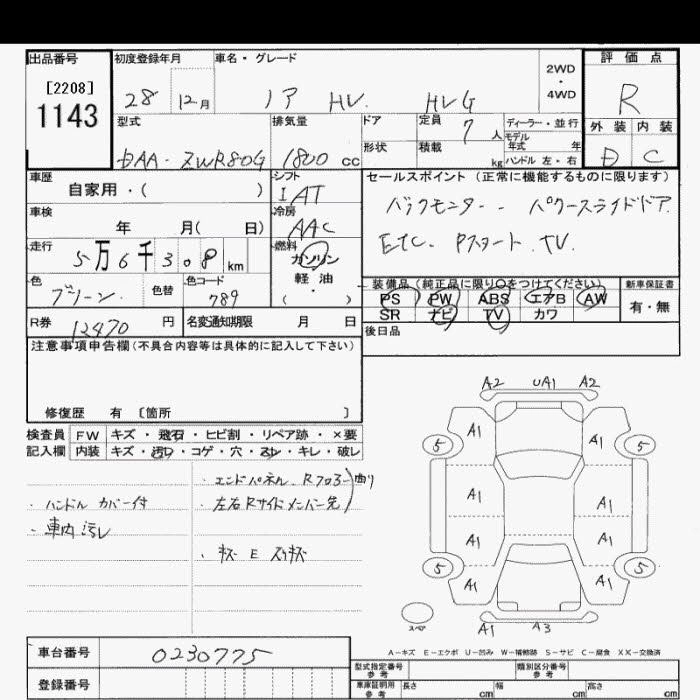 出品番号
[2208]
1143
初度登録年月
28 12月
車名・グレード
ノア HV. HVG
2WD
・
4WD
評価点
R
外装 内装
D C
型式
DAA-ZWR80G
排気量
1800 cc
ドア
形状
定員
7人
積載
kg
ディーラー・並行
モデル
年式 年
ハンドル 左・右
車歴
自家用・( )
シフト
IAT
車検
年 月( 日)
冷房
AAC
走行
5万6千308km
燃料
ガソリン
軽油
・
( )
色
グリーン.
色替
色コード
789
R券
12470 円
名変通知期限 月 日
セールスポイント (正常に機能するものに限ります)
バックモニター - パワースライドドア.
ETC. Pスタート. TV.
装備品(純正品に限り○をつけてください)
PS PW ABS エアB AW
SR ナビ TV カワ
新車保証書
有・無
後日品
注意事項申告欄(不具合内容等は具体的に記入して下さい)
修復歴 有 〔箇所 〕
検査員
記入欄
FW キズ・飛石・ヒビ割・リペア跡・×要
内装 キズ・汚レ・コゲ・穴・スレ・キレ・破レ
・ハンドル カバー付
・車内汚レ
・エンドパネル Rフロアー
・左右Rサイドメンバー先
曲り
・キズ E スリキズ
A2 UA1 A2
A1 A1
5 5
A1 A1
A1 A1
5 5
A1 A1
スペア
A1 A3
A-キズ E-エクボ U-凹み W-補修跡 S-サビ C-腐食 XX-交換済
車台番号 0230775
登録番号
型式指定番号
参考
類別区分番号
参考
車庫証明用
参考
長さ cm
幅 cm
高さ cm